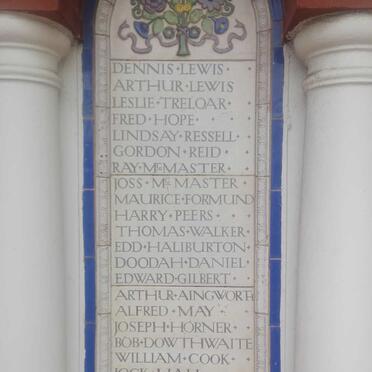 DENNIS·LEWIS·
ARTHUR·LEWIS
LESLIE·TRELOAR·
FRED·HOPE·
LINDSAY·RESSELL·
GORDON·REID·
RAY·Mc·MASTER·
JOSS·Mc·MASTER·
MAURICE·FORMUND
HARRY·PEERS·
THOMAS·WALKER·
EDD·HALIBURTON·
DOODAH·DANIEL·
EDWARD·GILBERT·
ARTHUR·AINGWORTH
ALFRED·MAY·
JOSEPH·HORNER·
BOB·DOWTHWAITE
WILLIAM·COOK·
JOCK